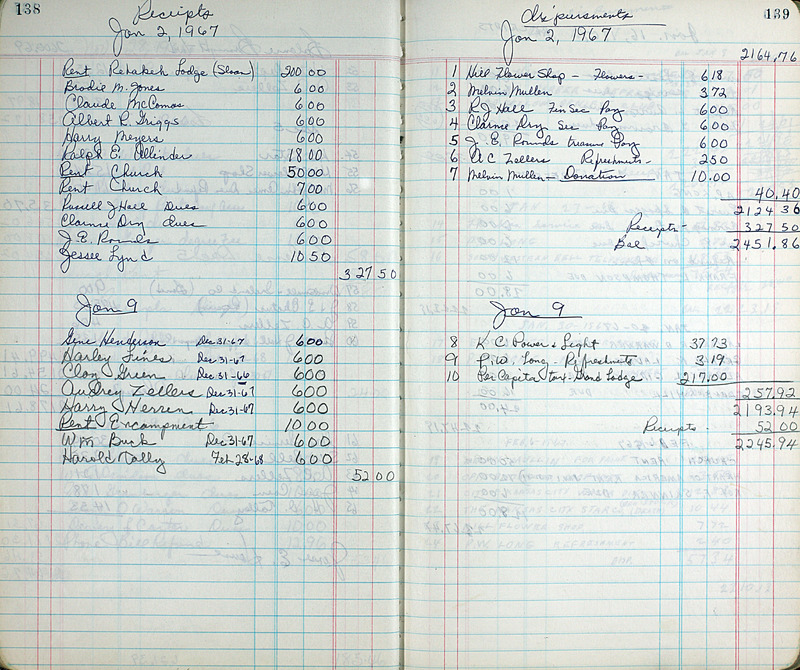 138
Receipts
Jan 2, 1967
Rent Rebakah Lodge (Sloan) 200 00
Brodie M. Jones 6 00
Claude McComas 6 00
Albert R. Griggs 6 00
Harry Meyers 6 00
Ralph E. Allinder 18 00
Rent Church 50 00
Rent Church 7 00
Russell J Hall Dues 6 00
Clarence Dry dues 6 00
J. E. Rounds 6 00
Jessee Lynd 10 50
327 50
Jan 9
Gene Henderson Dec 31-67 6 00
Harley Fines Dec 31-67 6 00
Clon Green Dec 31-66 6 00
Audrey Zellers Dec 31-67 6 00
Harry Herren Dec 31-67 6 00
Rent Encampment 10 00
Wm Buck Dec 31-67 6 00
Harold Tally Feb 28-68 6 00
52 00
139
Dispursments
Jan 2, 1967
2164,76
1 Hill Flower Shop - Flowers - 6 18
2 Melvin Mullen 3 72
3 R J Hall Fin Sec Pay 6 00
4 Clarence Dry Sec Pay 6 00
5 J. E. Rounds treasure Pay 6 00
6 A C Zellers Refreshments - 2 50
7 Melvin Mullen - Donation 10.00
40.40
2124 36
Receipts - 327 50
Bal 2451.86
Jan 9
8 K. C. Power & Light 37 73
9 Long - Refreshments 3 19
10 Per Capita tax - Grand Lodge 217.00
257.92
2193.94
Receipts - 52 00
2245.94